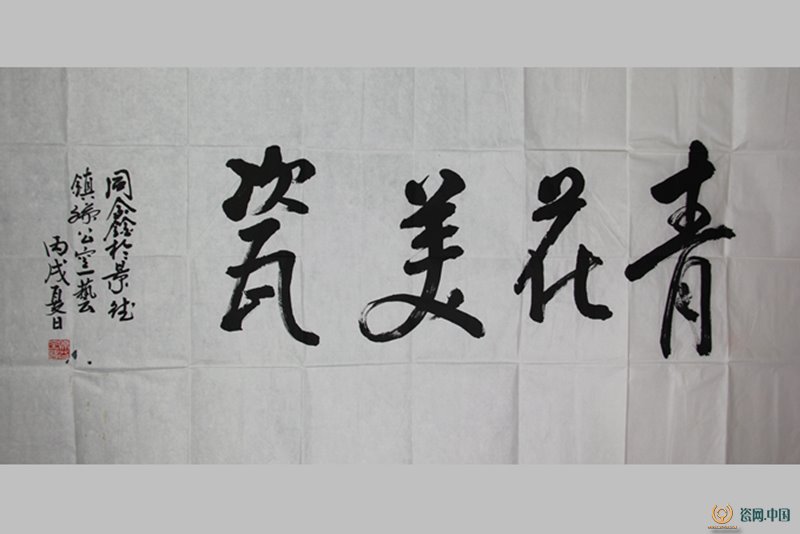 青花美瓷
同鑫於景德
鎮 公室藝
丙戌夏日
瓷网.中国